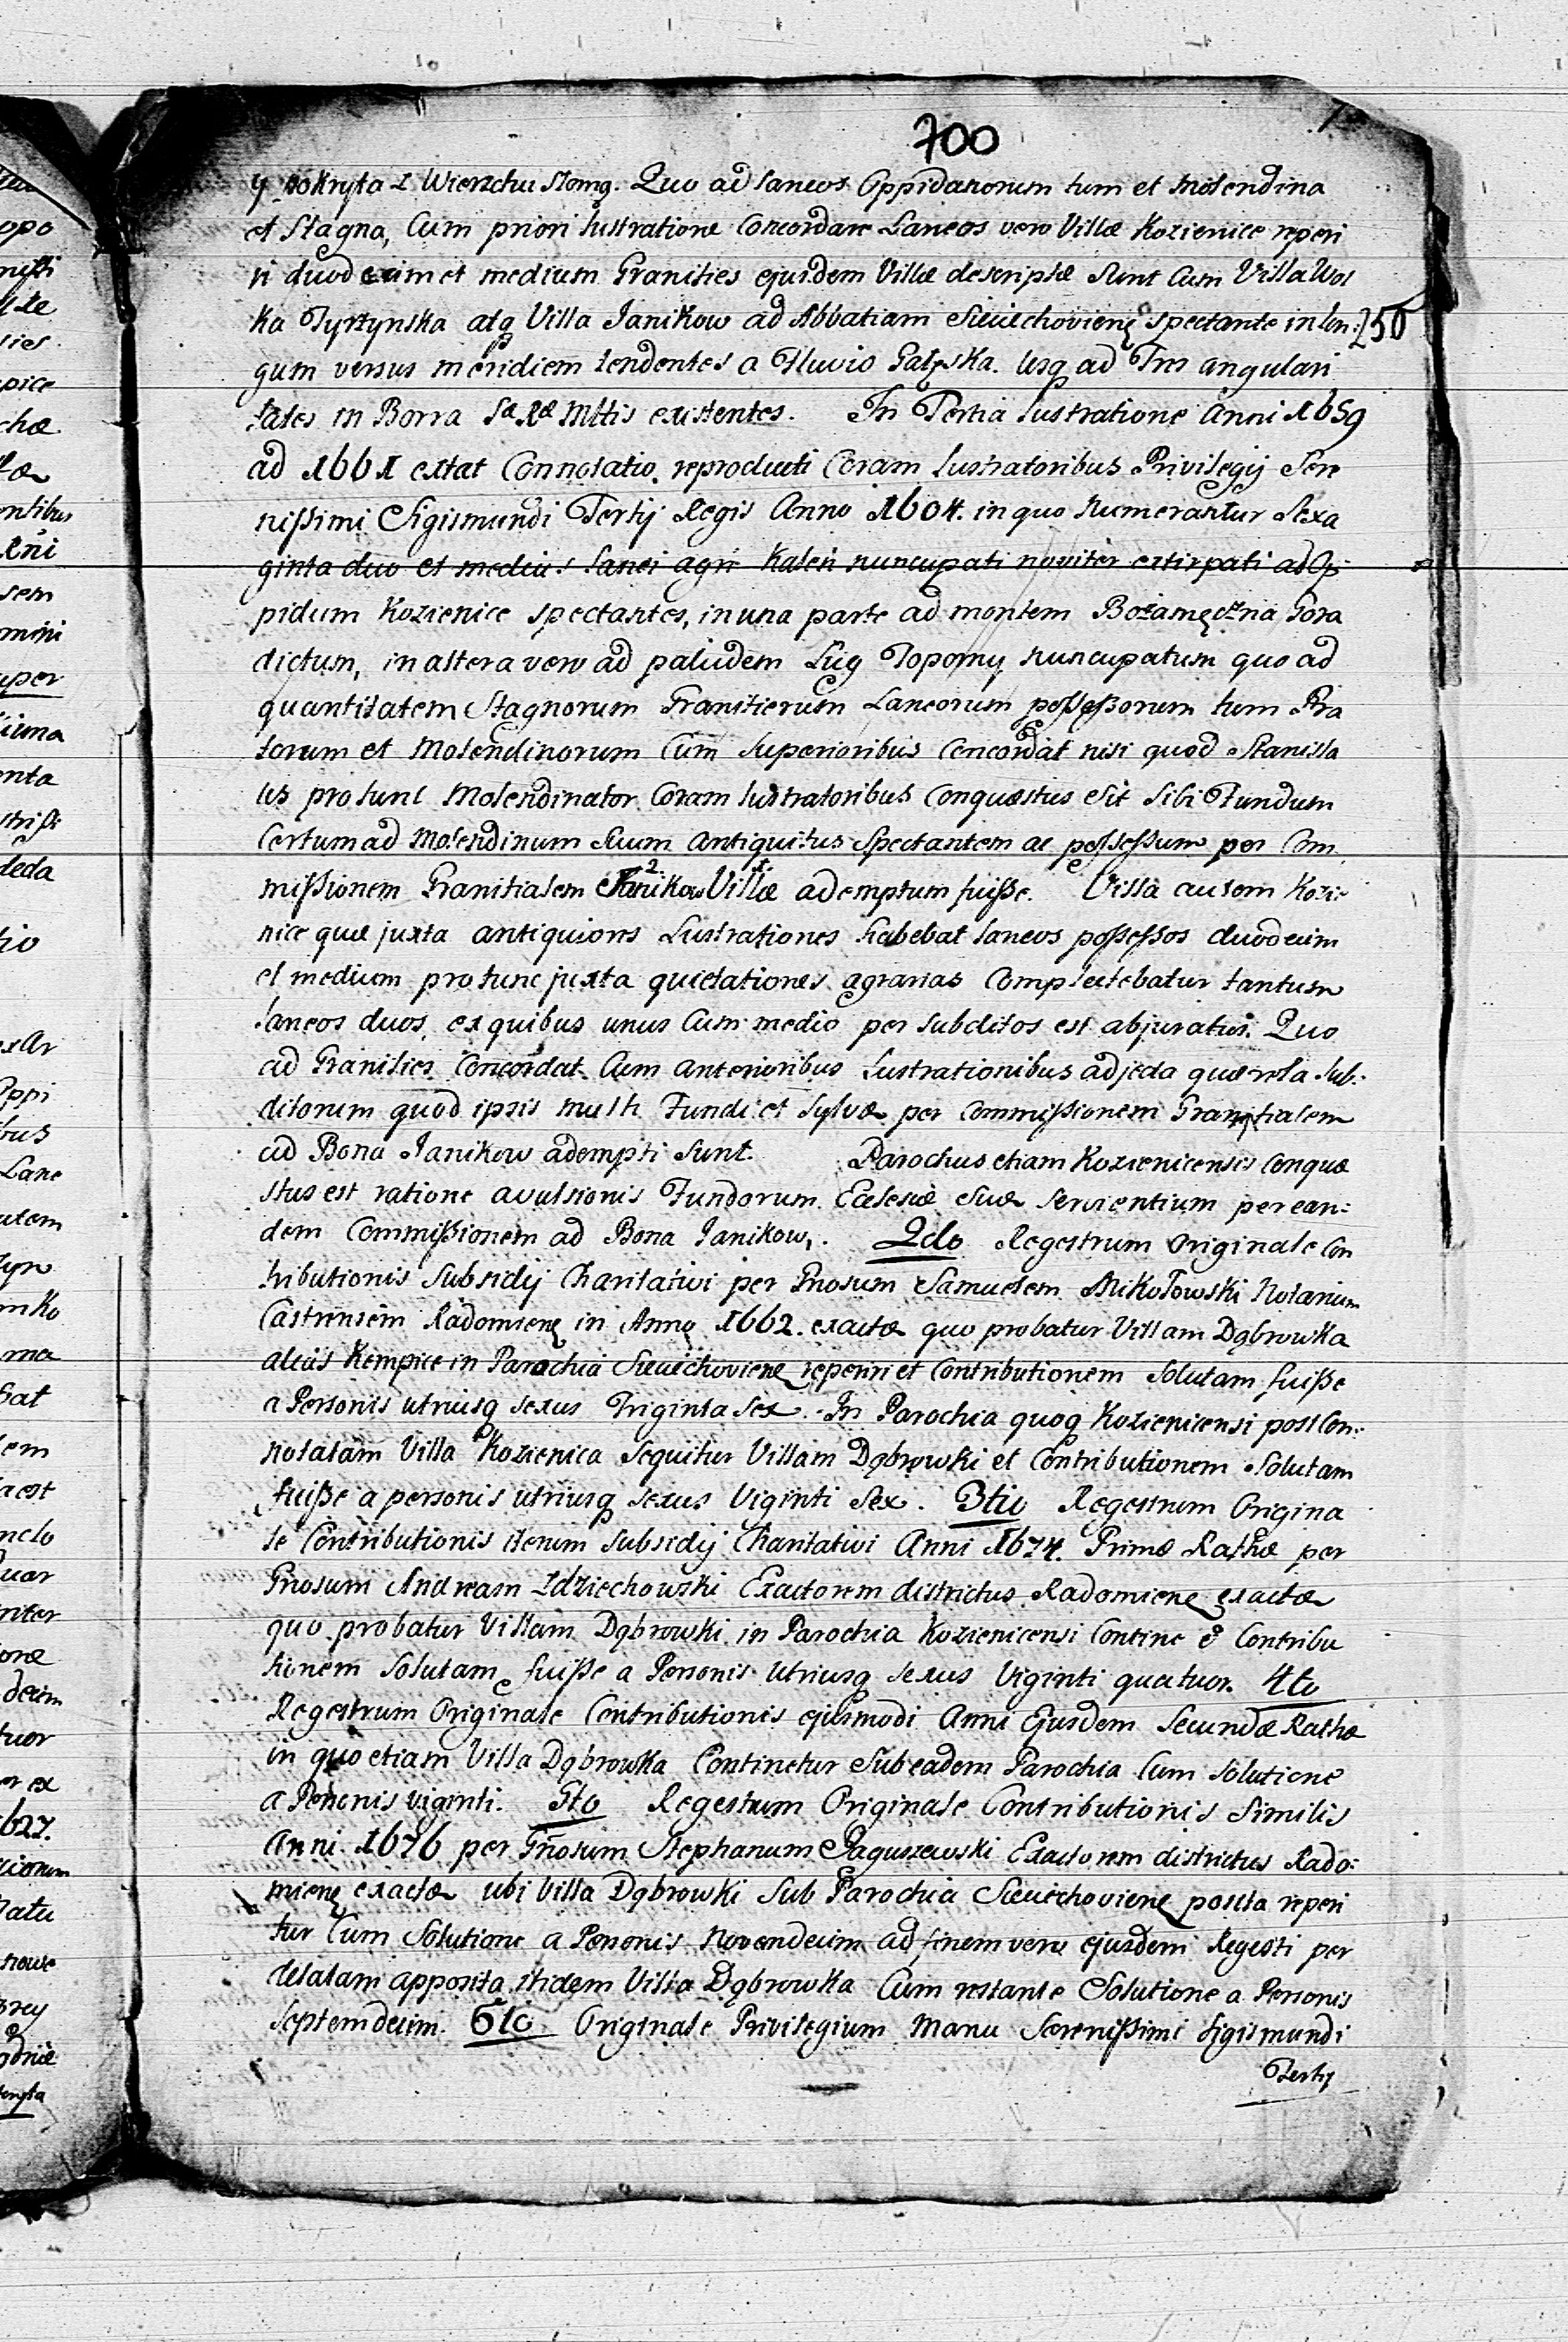 700
y pokryta z Wierzchu słomą. Quo ad laneos Oppidanorum tum et molendina
et Stagna, Cum priori lustratione Concordare Laneos vero Villæ Kozienice reperi
ri duodecim et medium Granities ejusdem Villæ descriptæ sunt Cum Villa Wol
ka Tyrzynska atq Villa Janikow ad Abbatiam Sieciechovienę spectante in lon:
250
gum versus meridiem tendentes a Fluvio usq ad Tres angulari
tates in Borra Sæ Ræ Mttis existentes. In Tertia lustratione Anni 1659
ad 1661 extat Connotatio reproducti Coram Lustratoribus Privilegij Sere
nißimi Sigismundi Tertij Regis Anno 1604. in quo numerantur Sexa
ginta duo et medius lanei agri Kaleń nuncupati noviter extirpati ad Op
pidum Kozienice spectantes, in una parte ad montem Bożamęczna Gora
dictum, in altera vero ad paludem Ług Toporny nuncupatum quo ad
quantitatem Stagnorum Granitierum Laneorum poſſeßorum tum Pra
torum et Molendinorum Cum Superioribus Concordat nisi quod Stanisla
us protunc Molendinator Coram lustratoribus Conquæstus est sibi Fundum
Certum ad Molendinum suum antiquitus spectantem ac poſſeſsum per Com
mißionem Granitialem Janikow 2 Villæ 1 ademptum fuiße. Villa autem Kozie
nice quæ juxta antiquiores Lustrationes habebat laneos poßeſsos duodecim
et medium protunc juxta quietationes agrarias Complectebatur tantum
laneos duos, ex quibus unus Cum medio per subditos est abjuratus. Quo
ad Granities Concordat Cum anterioribus Lustrationibus adjecta quærela sub:
ditorum quod ipsis multi Fundi et Sylvæ per Commißionem Granitialem
ad Bona Janikow adempti sunt. Parochus etiam Kozienicensis Conquæ
stus est ratione avulsionis Fundorum Eclesiæ suæ servientium per ean:
dem Commißionem ad Bona Janikow. 2do Regestrum Originale Con
tributionis Subsidij Charitativi per Gnosum Samuelem Mikołowski Notarium
Castrensem Radomienę in Anno 1662. exactæ quo probatur Villam Dąbrowka
alias Kempice in Parochia Sieciechovienę reperiri et Contributionem solutam fuiße
a Personis utriusq sexus Triginta sex. In Parochia quoq Kozienicensi post Con:
notatam Villa Kozienica sequitur Villam Dąbrowki et Contributionem solutam
fuiße a personis utriusq sexus Viginti Sex. 3tio Regestrum Origina
le Contributionis iterum Subsidij Charitativi Anni 1674. Primæ Rathæ per
Gnosum Andream Zdziechowski Exactorem districtus Radomienę exactæ
quo probatur Villam Dąbrowki in Parochia Kozienicensi Contine & Contribu
tionem solutam fuiße a Personis utriusq sexus Viginti quatuor. 4to
Regestrum Originale Contributionis ejusmodi Anni Ejusdem Secundæ Rathæ
in quo etiam Villa Dąbrowka Continetur Sub eadem Parochia Cum Solutione
a Personis viginti. 5to Regestrum Originale Contributionis Similis
Anni 1676 per Gnosum Stephanum Jaguszewski Exactorem districtus Rado:
mienę exactæ ubi Villa Dąbrowki Sub Parochia Sieciechovienę posita reperi
tur Cum Solutione a Personis Novendecim ad finem vero ejusdem Regestri per
delatam apposita itidem Villa Dąbrowka Cum restante Solutione a Personis
Septemdecim. 6to Originale Privilegium Manu Serenißimi Sigismundi
Tertij